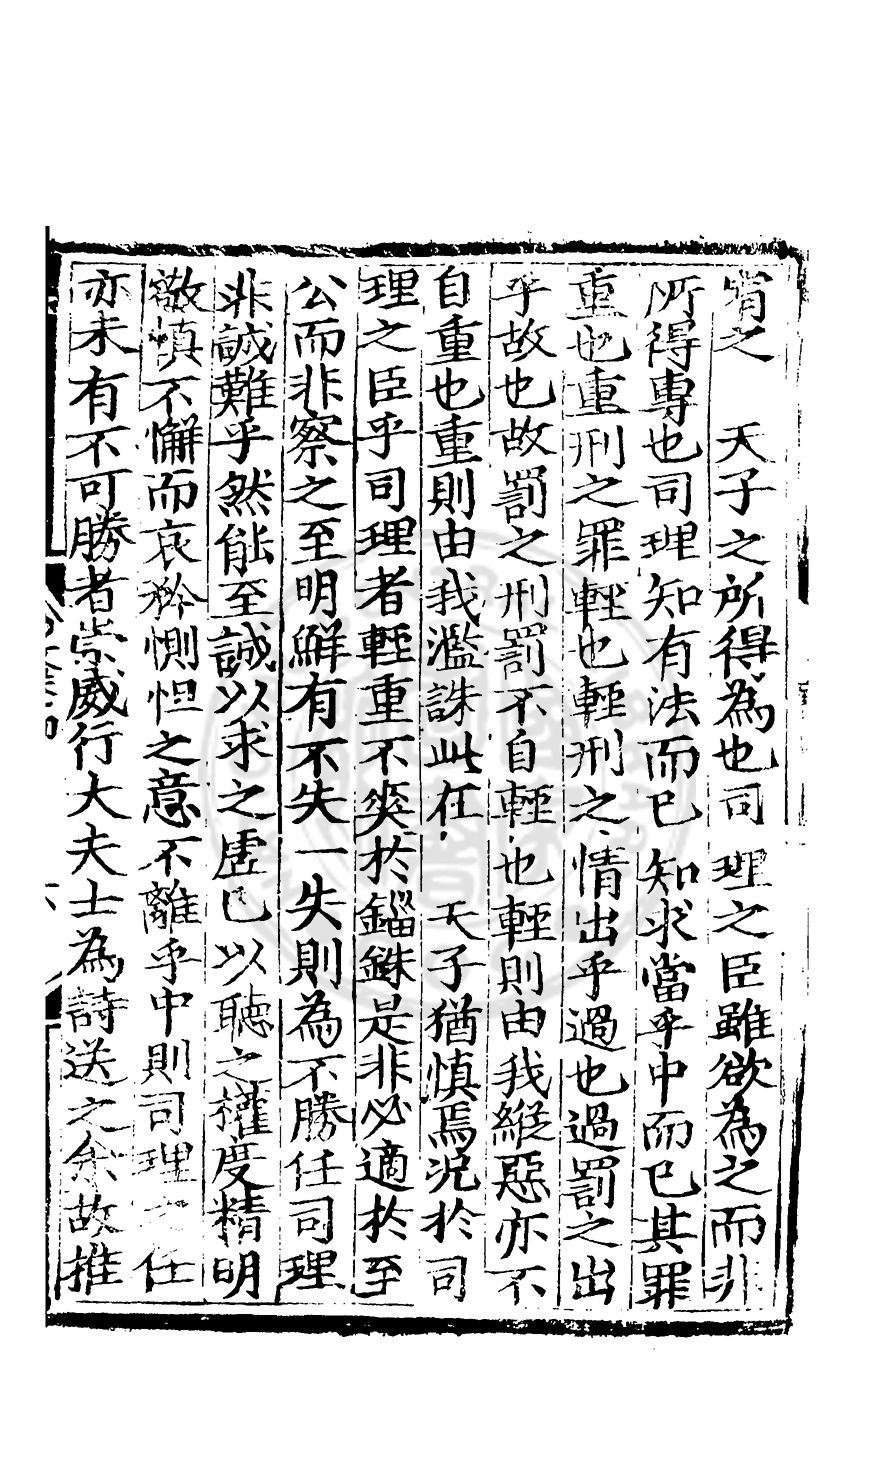 宥之　天子之所得為也司理之臣雖欲為之而非
所得專也司理知有法而已知求當乎中而已其罪
重也重刑之罪輕也輕刑之情出乎過也過罰之出
乎故也故罰之刑罰不自輕也輕則由我縱惡亦不
自重也重則由我濫誅此在　天子猶慎焉況於司
理之臣乎司理者輕重不爽於錙銖是非必適於至
公而非察之至明鮮有不失一失則為不勝任司理
非誠難乎然能至誠以求之虛己以聽之權度精明
敬慎不懈而哀矜惻怛之意不離乎中則司理之任
亦未有不可勝者崇威行大夫士為詩送之余故推